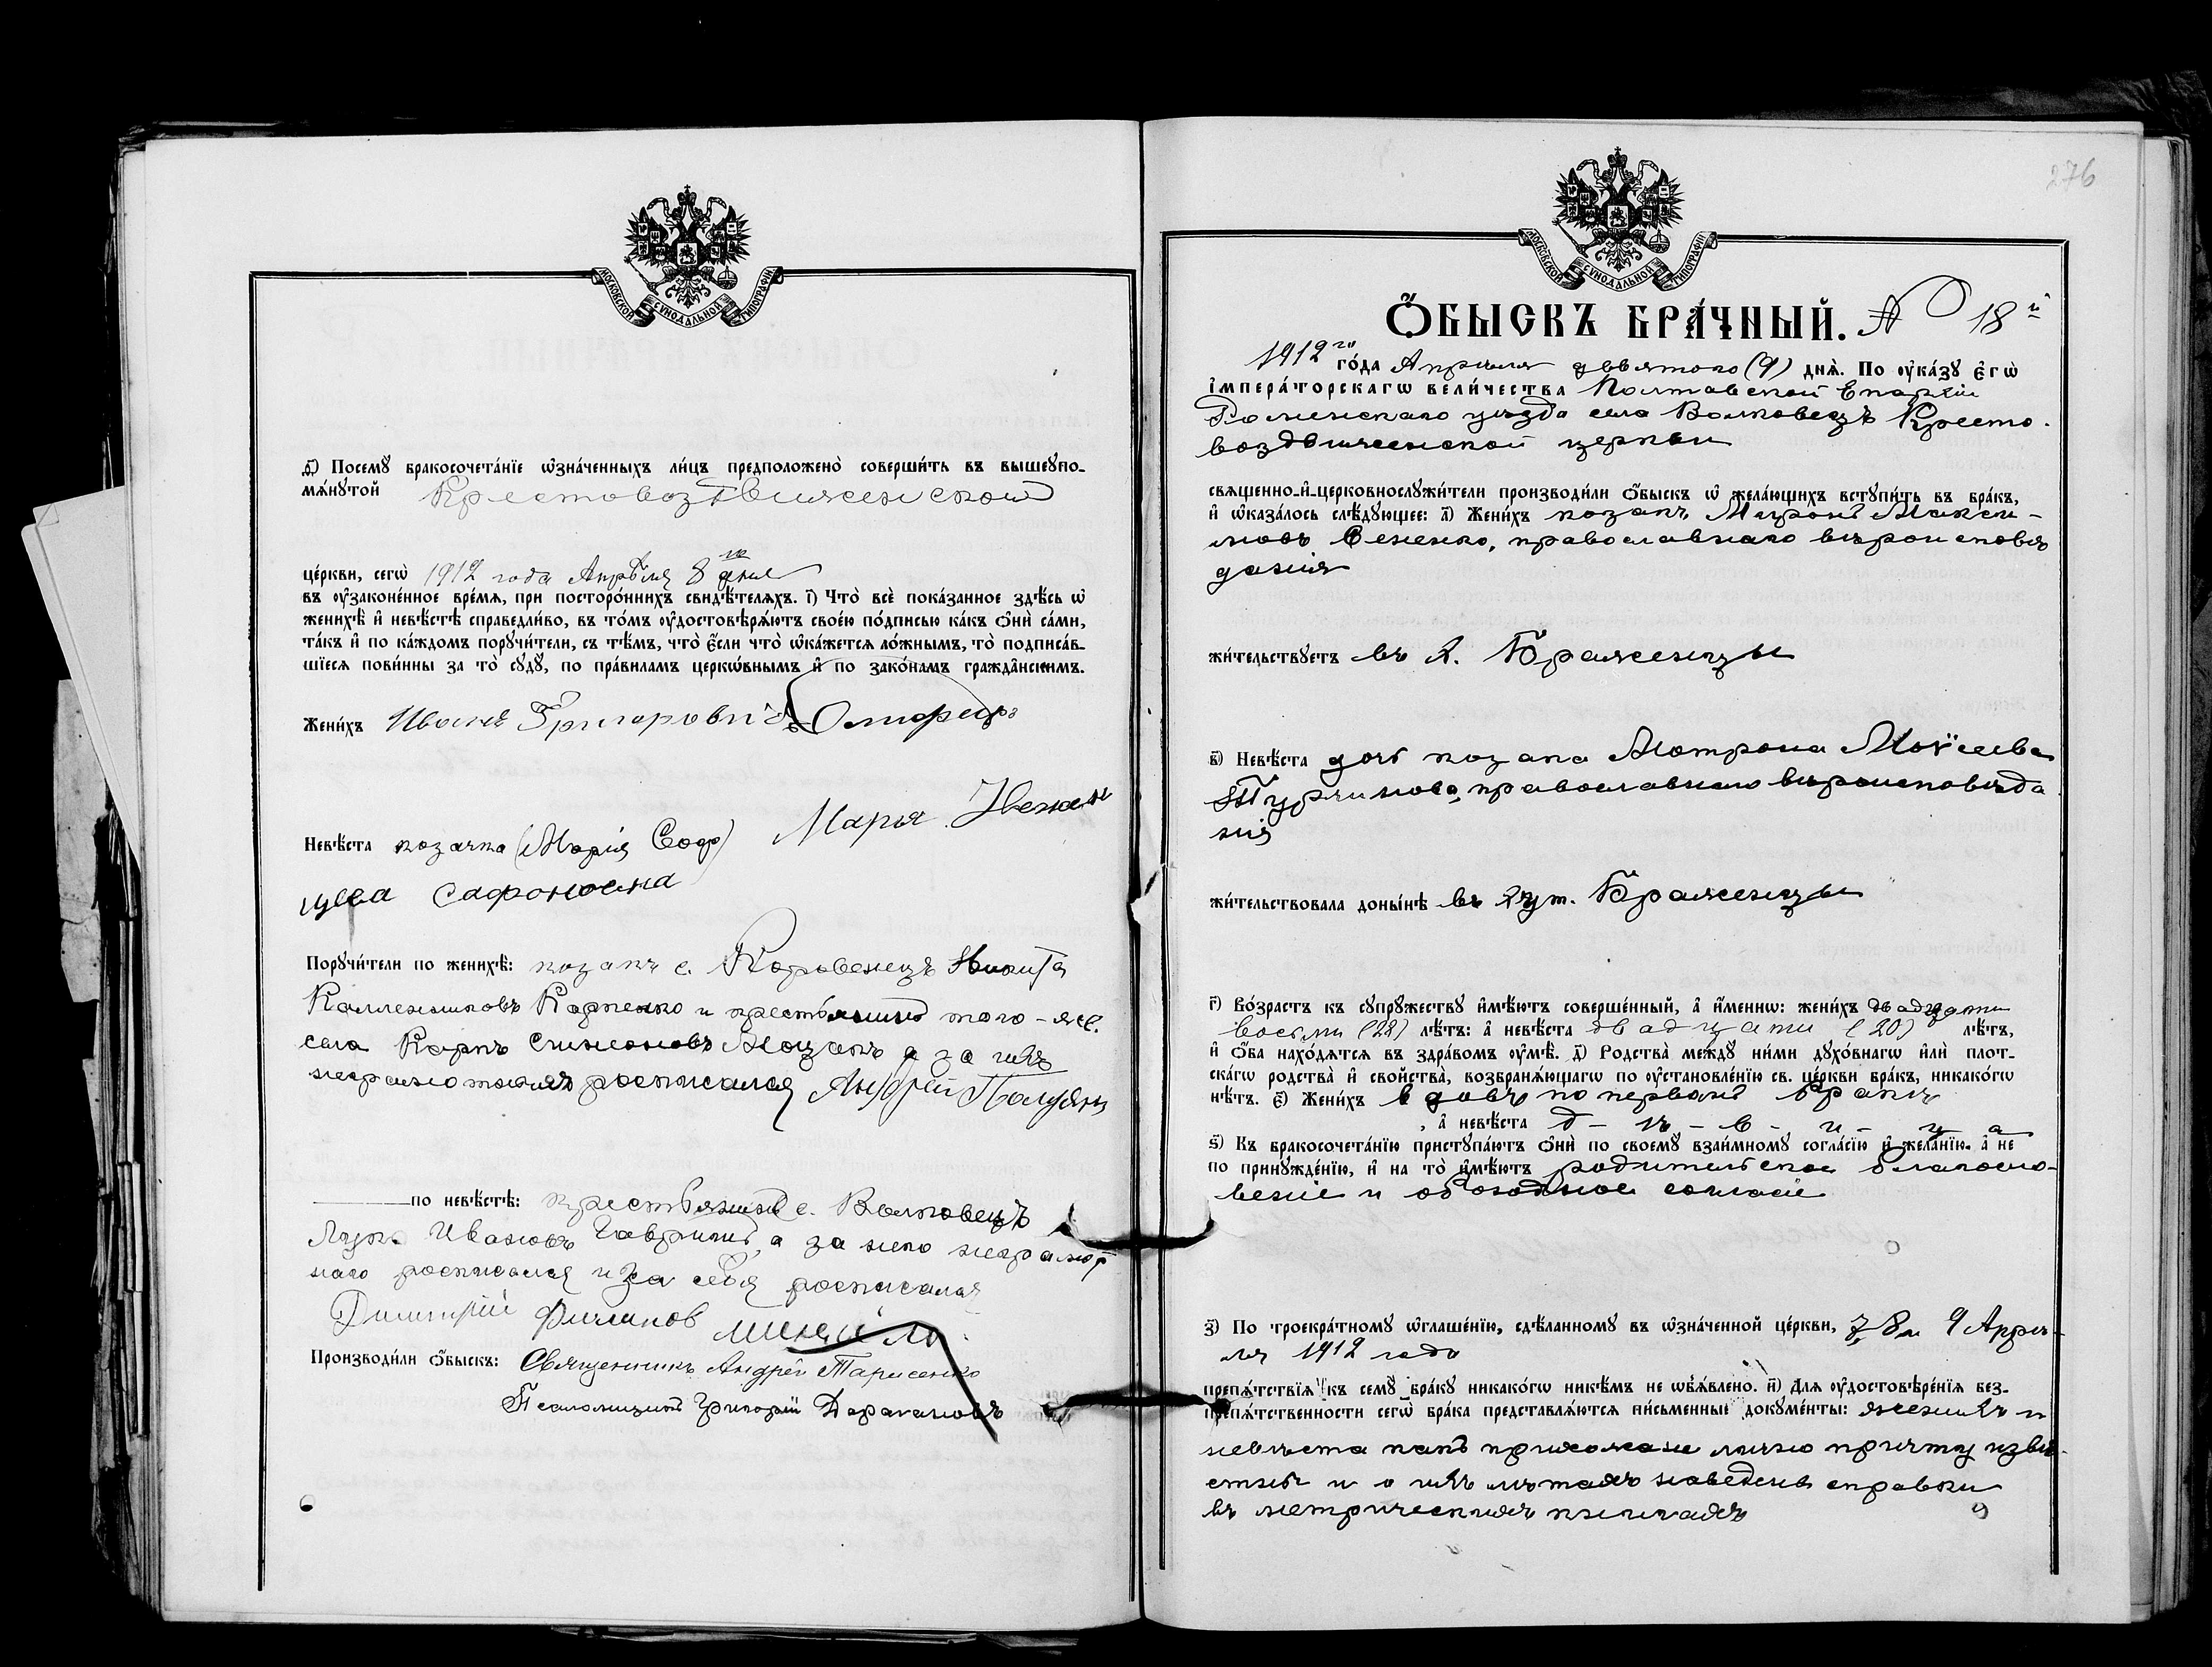 МОСКОВСКОЙ СѴНОДАЛЬНОЙ ТИПОГРАФІИ
ѳ҃) Посемꙋ̀ бракосочета́нїе ѡ҆зна́ченныхъ ли́цъ предположено̀ соверши́ть въ вышеꙋпо-
мѧ́нꙋтой Крестовоздвиженской
це́ркви, сегѡ̀ 1912 года Апрѣля 8 го дня
въ ᲂу҆законе́нное вре́мѧ, при посторо́ннихъ свидѣ́телѧхъ. і҃) Что̀ всѐ пока́занное здѣ́сь ѡ҆
женихѣ̀ и҆ невѣ́стѣ справедли́во, въ то́мъ ᲂу҆достовѣрѧ́ютъ свое́ю по́дписью ка́къ ѻ҆нѝ са́ми,
та́къ и҆ по ка́ждомъ порꙋчи́тели, съ тѣ́мъ, что̀ є҆́сли что̀ ѡ҆ка́жетсѧ ло́жнымъ, то̀ подписа́в-
шїесѧ пови́нны за то̀ сꙋдꙋ̀, по пра́виламъ церкѡ́внымъ и҆ по зако́намъ гражда̑нскимъ.
Жени́хъ Иванъ Григоровичъ
Невѣ́ста козачка (Марія Соф) Марья
Сафоновна
Порꙋчи́тели по женихѣ̀: козакъ с. Коровенецъ Никита
Карпенко и крестьянинъ того-же
села Карпъ Симоновъ а за нихъ
неграмотныхъ росписался Андрей Полуянъ
по невѣ́стѣ: крестьянинъ с. Волковецъ
Лука Ивановъ Гавришъ, а за него неграмот
наго росписался и за себя росписался
Димитрій
Производи́ли ѻ҆́быскъ: Священникъ Андрей Тарасенко
Псаломщикъ Григорій Дарагановъ
276
МОСКОВСКОЙ СѴНОДАЛЬНОЙ ТИПОГРАФІИ
Ѻ҆́БЫСКЪ БРА́ЧНЫЙ. № 18 й
1912 го го́да Апрѣля девятого (9) днѧ̀. По ᲂу҆ка́зꙋ є҆гѡ̀
і҆мпера́торскагѡ вели́чества Полтавской Епархіи
Роменскаго уѣзда села Волковецъ Кресто-
воздвиженской церкви
свѧщенно-и҆-церковнослꙋжи́тели производи́ли ѻ҆́быскъ ѡ҆ жела́ющихъ встꙋпи́ть въ бра́къ,
и҆ ѡ҆каза́лось слѣ́дꙋющее: а҃) Жени́хъ козакъ Миронъ Макси-
мовъ Сененко, православнаго вѣроисповѣ
данія
жи́тельствꙋетъ въ д. Браженцы
в҃) Невѣ́ста дочь козака Мотрона Моѵсеева
православнаго вѣроисповѣда
нія
жи́тельствовала доны́нѣ въ хут. Браженцы
г҃) Во́зрастъ къ сꙋпрꙋ́жествꙋ и҆мѣ́ютъ соверше́нный, а҆ и҆́меннѡ: жени́хъ двадцати
восьми (28) лѣ́тъ: а҆ невѣ́ста двадцати (20) лѣ́тъ,
и҆ ѻ҆́ба нахо́дѧтсѧ въ здра́вомъ ᲂу҆мѣ̀. д҃) Родства̀ междꙋ̀ ни́ми дꙋхо́внагѡ и҆лѝ плот-
ска́гѡ родства̀ и҆ сво́йства̀, возбранѧ́ющагѡ по ᲂу҆становле́нїю св. це́ркви бра́къ, никако́гѡ
нѣ́тъ. є҃) Жени́хъ вдовъ по первомъ бракѣ
, а҆ невѣ́ста д-ѣ-в-и-ц-а
ѕ҃) Къ бракосочета́нїю пристꙋпа́ютъ ѻ҆нѝ по своемꙋ̀ взаи́мномꙋ согла́сїю и҆ жела́нїю, а҆ не
по принꙋжде́нїю, и҆ на то̀ и҆мѣ́ютъ родительское благосло-
веніе и обоюдное согласіе
з҃) По троекра́тномꙋ ѡ҆глаше́нїю, сдѣ́ланномꙋ въ ѡ҆зна́ченной це́ркви, 7, 8 и 9 Апрѣ-
ля 1912 года
препѧ́тствїѧ къ семꙋ̀ бра́кꙋ никако́гѡ никѣ́мъ не ѡ҆б̾ѧ́влено. и҃) Длѧ ᲂу҆достовѣре́нїѧ без-
препѧ́тственности сегѡ̀ бра́ка представлѧ́ютсѧ пи́сьменные докꙋме́нты: женихъ и
невѣста какъ прихожане лично причту извѣ-
стны и о ихъ лѣтахъ наведены справки
въ метрическихъ книгахъ